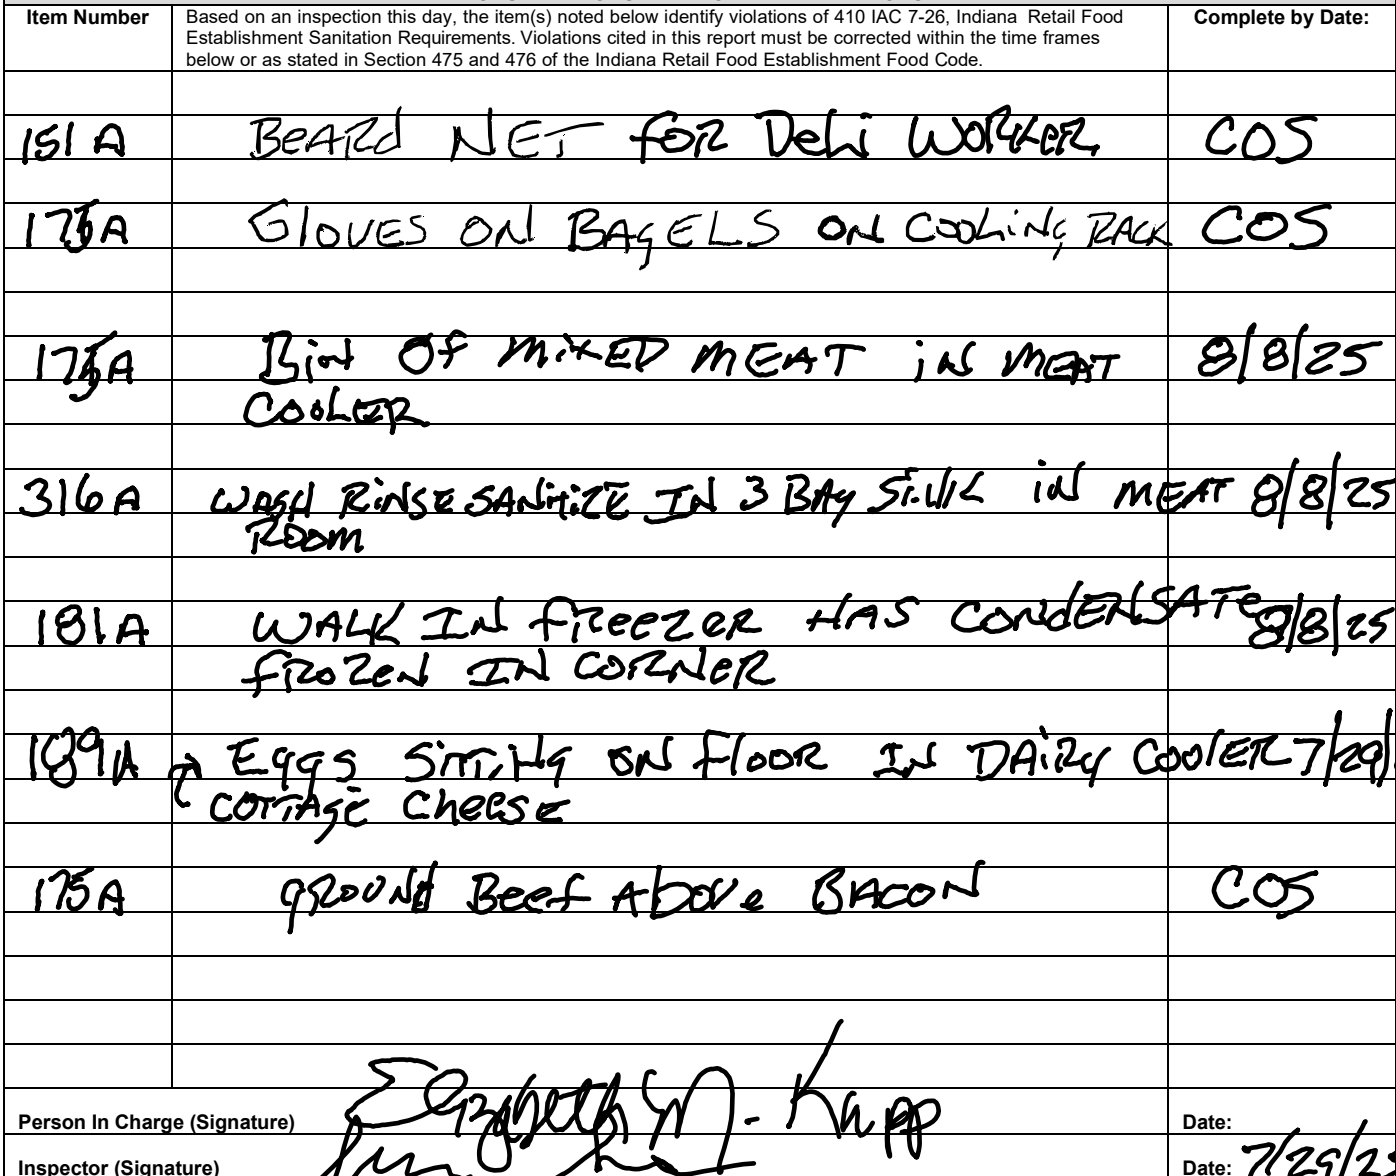 Item Number Based on an inspection this day, the item(s) noted below identify violations of 410 IAC 7-26, Indiana Retail Food Complete by Date:
Establishment Sanitation Requirements. Violations cited in this report must be corrected within the time frames
below or as stated in Section 475 and 476 of the Indiana Retail Food Establishment Food Code.
151 A BEARd NET for Deli WORKER COS
175A GlOVES ON BAgELS ON COOLiNg RACK COS
175A Bin Of MiXED MEAT iN MEAT 8/8/25
COOLER
316A WASH RiNSE SANitiZE IN 3 BAy SiNK iN MEAT 8/8/25
ROOM
181A WALK IN freezer HAS CONdENSATe 8/8/25
frozen IN CORNER
189A Eggs SittiNg ON flOOR IN DAiRy COOlER 7/29/
COTTAge CheeSE
175A gROUNd Beef AbOVe BACON COS
Person In Charge (Signature) Elizabeth M. Knapp Date:
Inspector (Signature) Date: 7/29/2